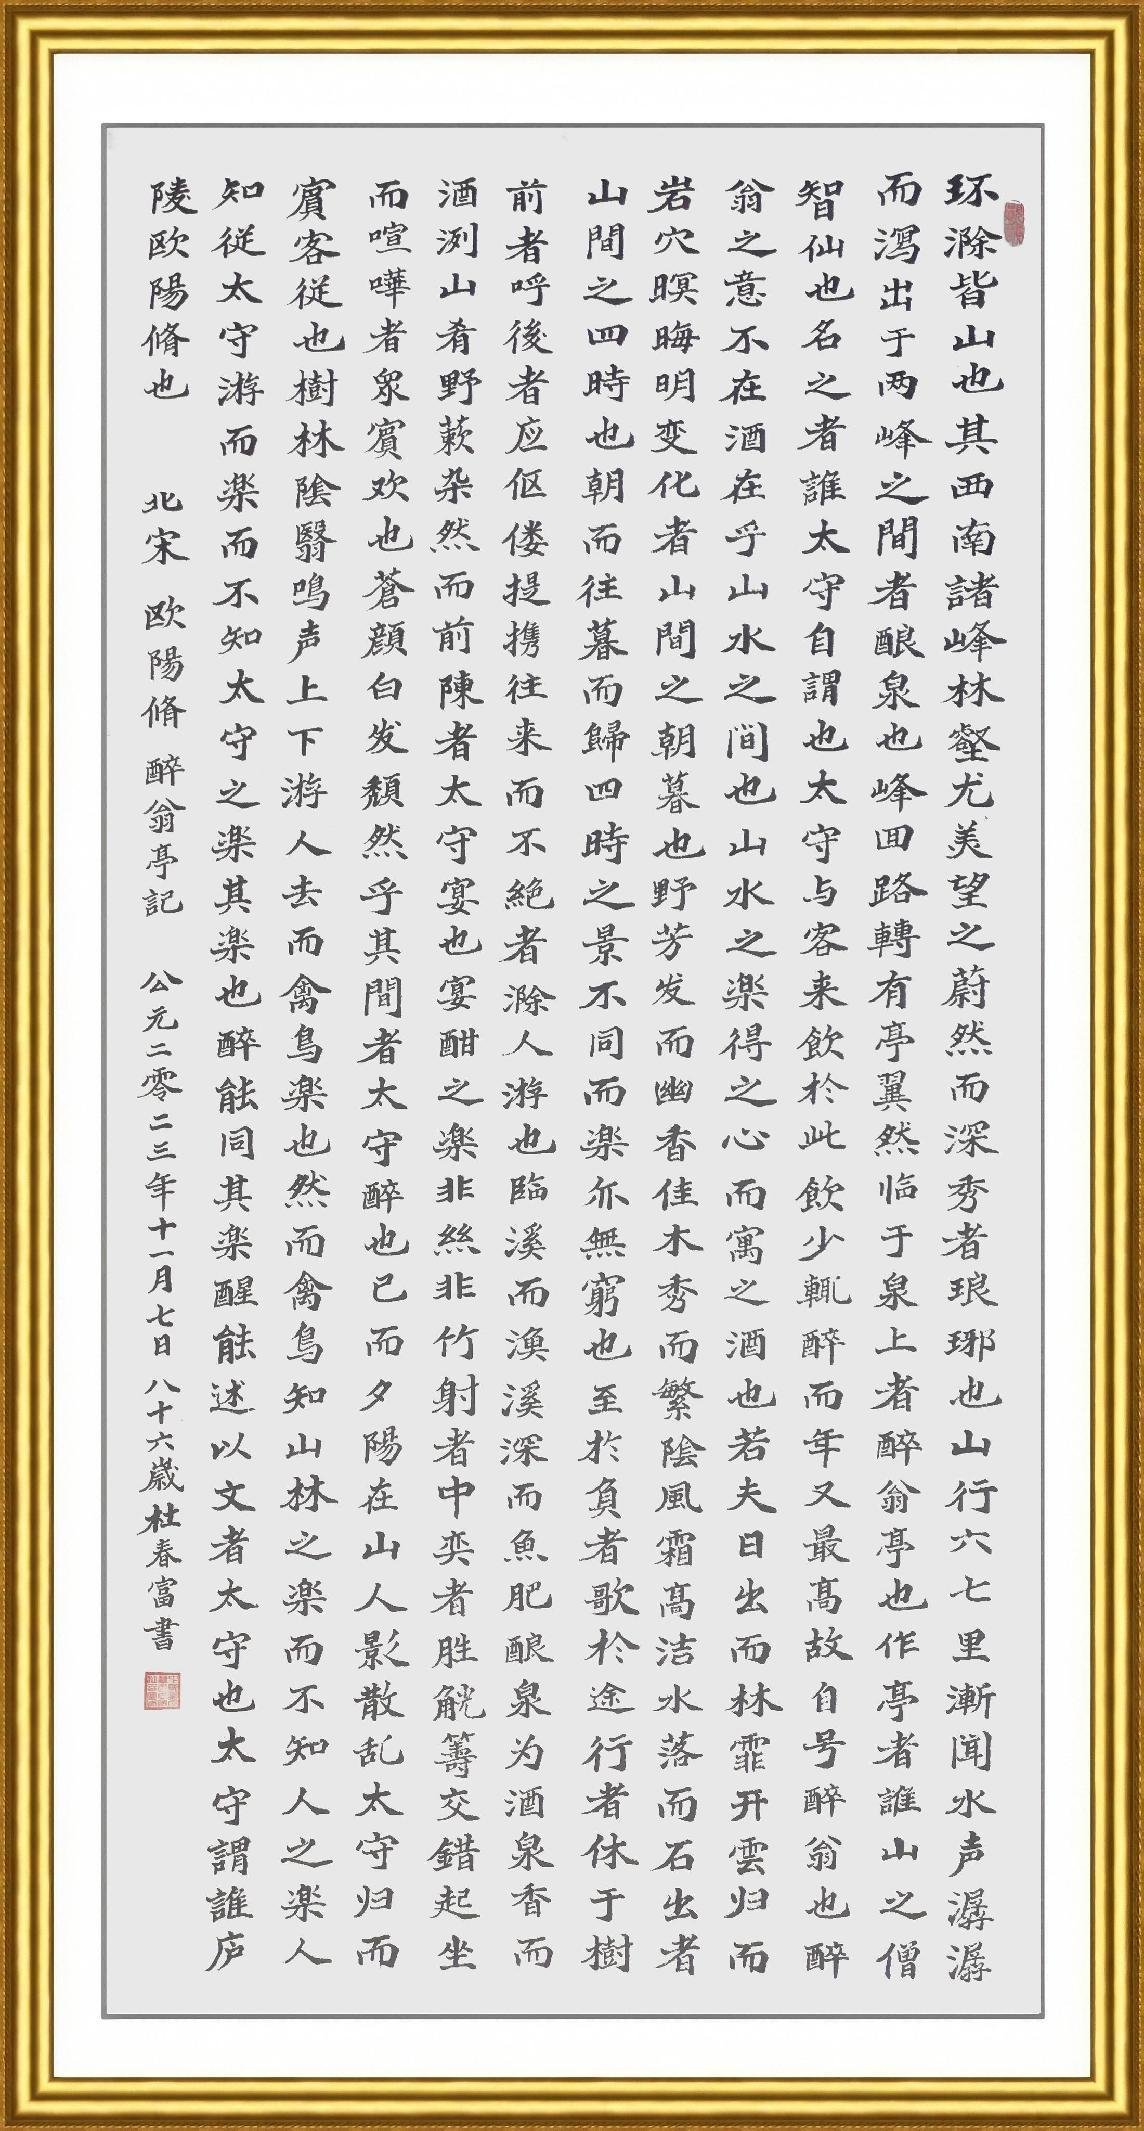 环滁皆山也其西南諸峰林壑尤美望之蔚然而深秀者琅琊也山行六七里漸聞水声潺潺
而瀉出于两峰之間者酿泉也峰回路轉有亭翼然临于泉上者醉翁亭也作亭者誰山之僧
智仙也名之者誰太守自謂也太守与客来飲於此飲少輒醉而年又最高故自号醉翁也醉
翁之意不在酒在乎山水之间也山水之楽得之心而寓之酒也若夫日出而林霏开雲归而
岩穴暝晦明变化者山間之朝暮也野芳发而幽香佳木秀而繁陰風霜高洁水落而石出者
山間之四時也朝而往暮而歸四時之景不同而楽亦無窮也至於負者歌於途行者休于樹
前者呼後者应伛偻提携往来而不絶者滁人游也臨溪而漁溪深而魚肥酿泉为酒泉香而
酒洌山肴野蔌杂然而前陳者太守宴也宴酣之楽非絲非竹射者中奕者胜觥籌交錯起坐
而喧嘩者衆賓欢也蒼顔白发頽然乎其間者太守醉也已而夕陽在山人影散乱太守归而
賓客従也樹林陰翳鳴声上下游人去而禽鳥楽也然而禽鳥知山林之楽而不知人之楽人
知従太守游而楽而不知太守之楽其楽也醉能同其楽醒能述以文者太守也太守謂誰庐
陵欧陽脩也 北宋 欧陽脩 醉翁亭記 公元二零二三年十一月七日 八十六歲杜春富書